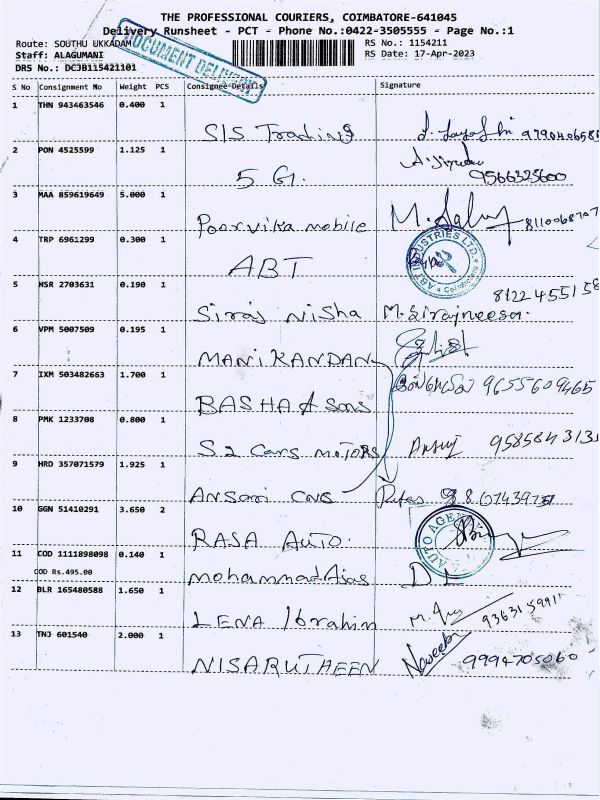 THE PROFESSIONAL COURIERS, COIMBATORE-641045
Delivery Runsheet - PCT - Phone No.:0422-3505555 - Page No.:1
Route: SOUTHU UKKADAM
RS No.: 1154211
Staff: ALAGUMANI
RS Date: 17-Apr-2023
DRS No.: DCJB115421101
DOCUMENT DELIVERY
S No Consignment No Weight PCS Consignee Details Signature
1 THN 943463546 0.400 1
SIS Trading
2 PON 4525599 1.125 1
5 G. 9566325600
3 MAA 859619649 5.000 1
Poorvika mobile 8110068707
4 TRP 6961299 0.300 1
ABT
ABT INDUSTRIES LTD.
5 HSR 2703631 0.190 1
8122455158
Siraj Nisha M.Sirajneesa.
6 VPM 5007509 0.195 1
MANIKANDAN
7 IXM 503482663 1.700 1
9655609465
BASHA & Sons
8 PMK 1233708 0.800 1
S.2 Cars MOTORS 9585843131
9 HRD 357071579 1.925 1
Ansari Cars
10 GGN 51410291 3.650 2
RASA AUTO.
AUTO AGENCY
11 COD 1111898098 0.140 1
COD Rs.495.00
Mohammad Ajas
12 BLR 165480588 1.650 1
LENA Ibrahim
13 TNJ 601540 2.000 1
NISARUTHEEN Naveebi 9994705060